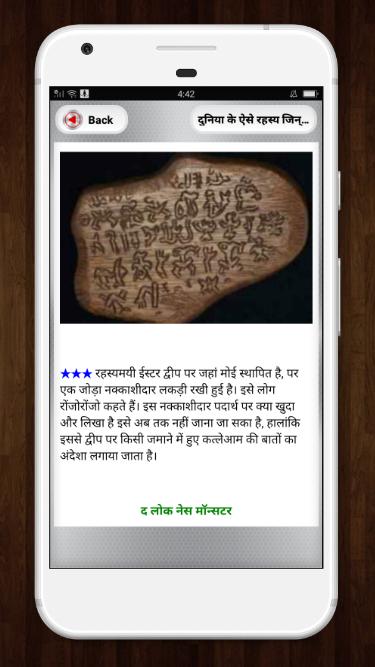 4:42
Back
दुनिया के ऐसे रहस्य जिन्...
★★★ रहस्यमयी ईस्टर द्वीप पर जहां मोई स्थापित है, पर
एक जोड़ा नक्काशीदार लकड़ी रखी हुई है। इसे लोग
रोंजोरोंजो कहते हैं। इस नक्काशीदार पदार्थ पर क्या खुदा
और लिखा है इसे अब तक नहीं जाना जा सका है, हालांकि
इससे द्वीप पर किसी जमाने में हुए कत्लेआम की बातों का
अंदेशा लगाया जाता है।
द लोक नेस मॉन्सटर